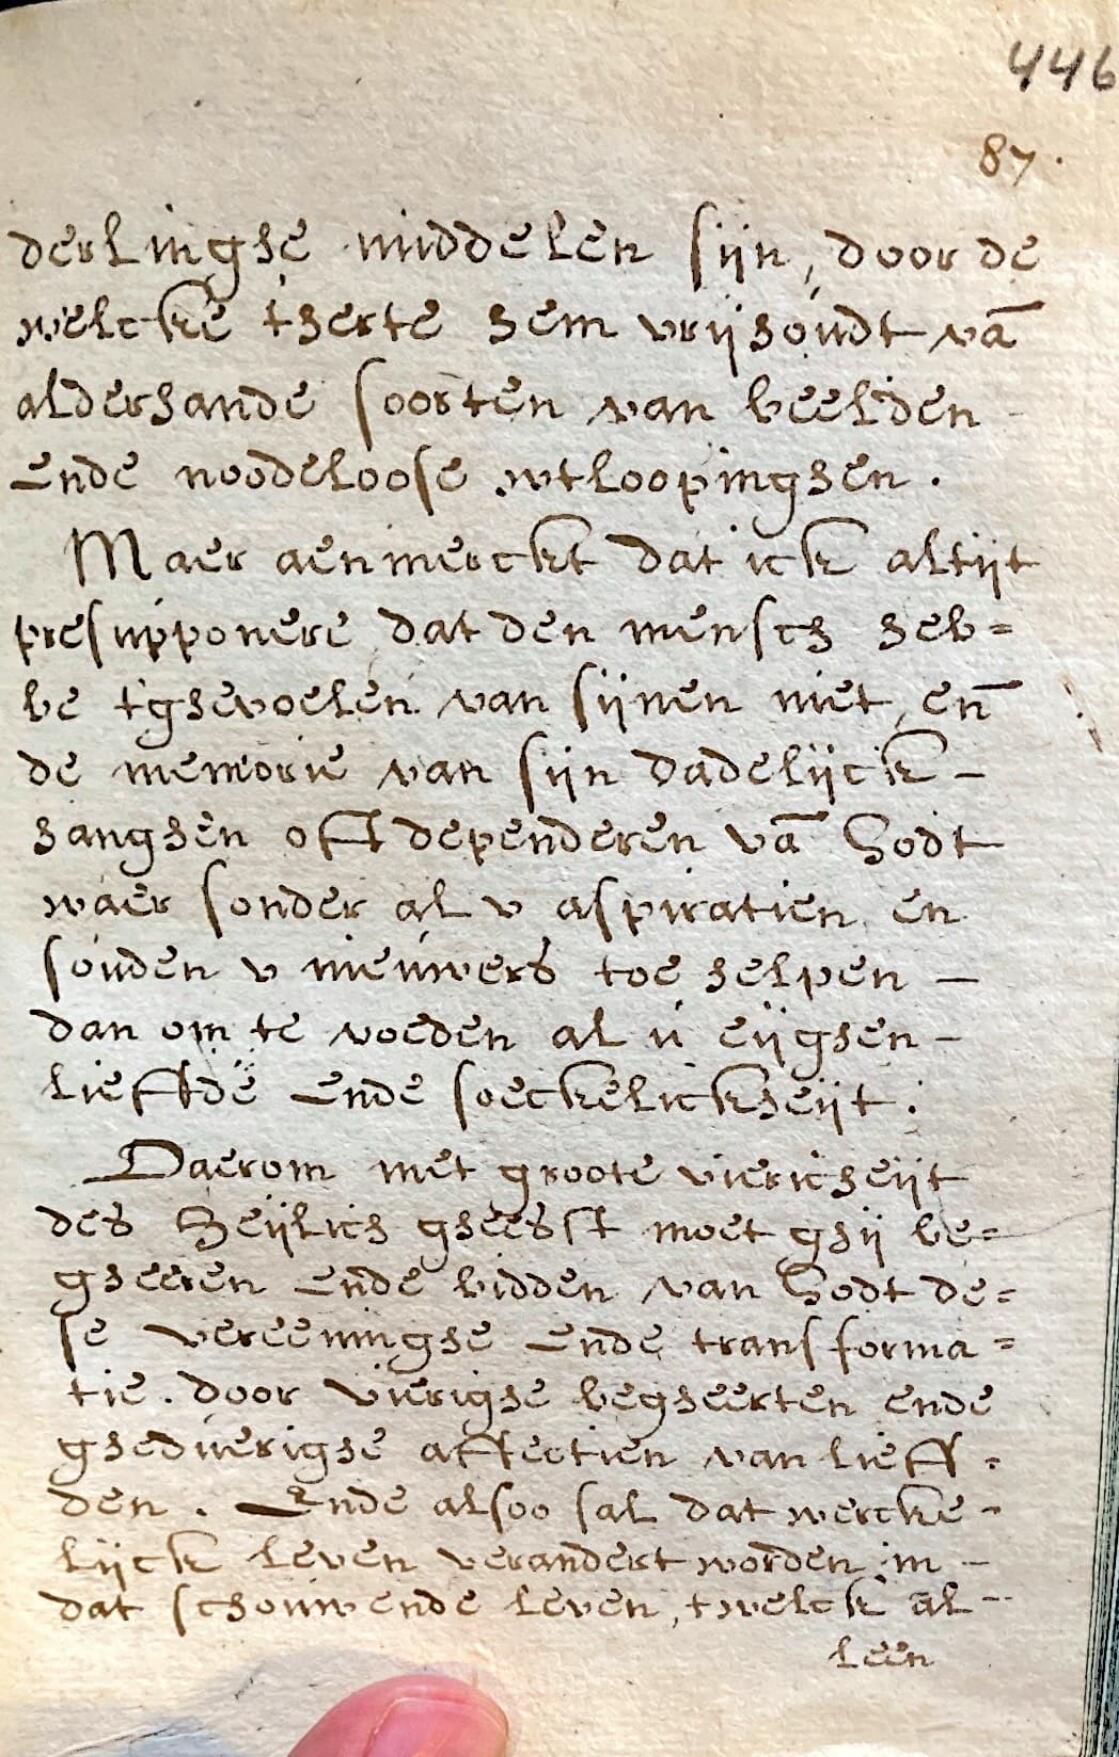 446
87.
derlinghe middelen sijn, door de
welcke therte hem vrijhoudt vā
alderhande soorten van beelden
ende noodeloose wtloopinghen.
Maer aenmerckt dat ick altijt
presupponere dat den mensch heb=
be tghevoelen van sijnen niet, eñ
de memorie van sijn dadelijck -
hanghen oft dependeren vā Godt
waer sonder al v aspiratien en
souden v nieuwers toe helpen -
dan om te voeden al u eijghen -
lieffde ende soeckelickheijt.
Daerom met groote viericheijt
des Heijlich gheest moet ghij be=
gheeren ende bidden van Godt de=
se vereeninghe ende transforma=
tie. door vierighe begheerten ende
gheduerighe affectien van lieff=
den. Ende alsoo sal dat wercke-
lijck leven verandert worden in -
dat schouwende leven, twelck al-
leen